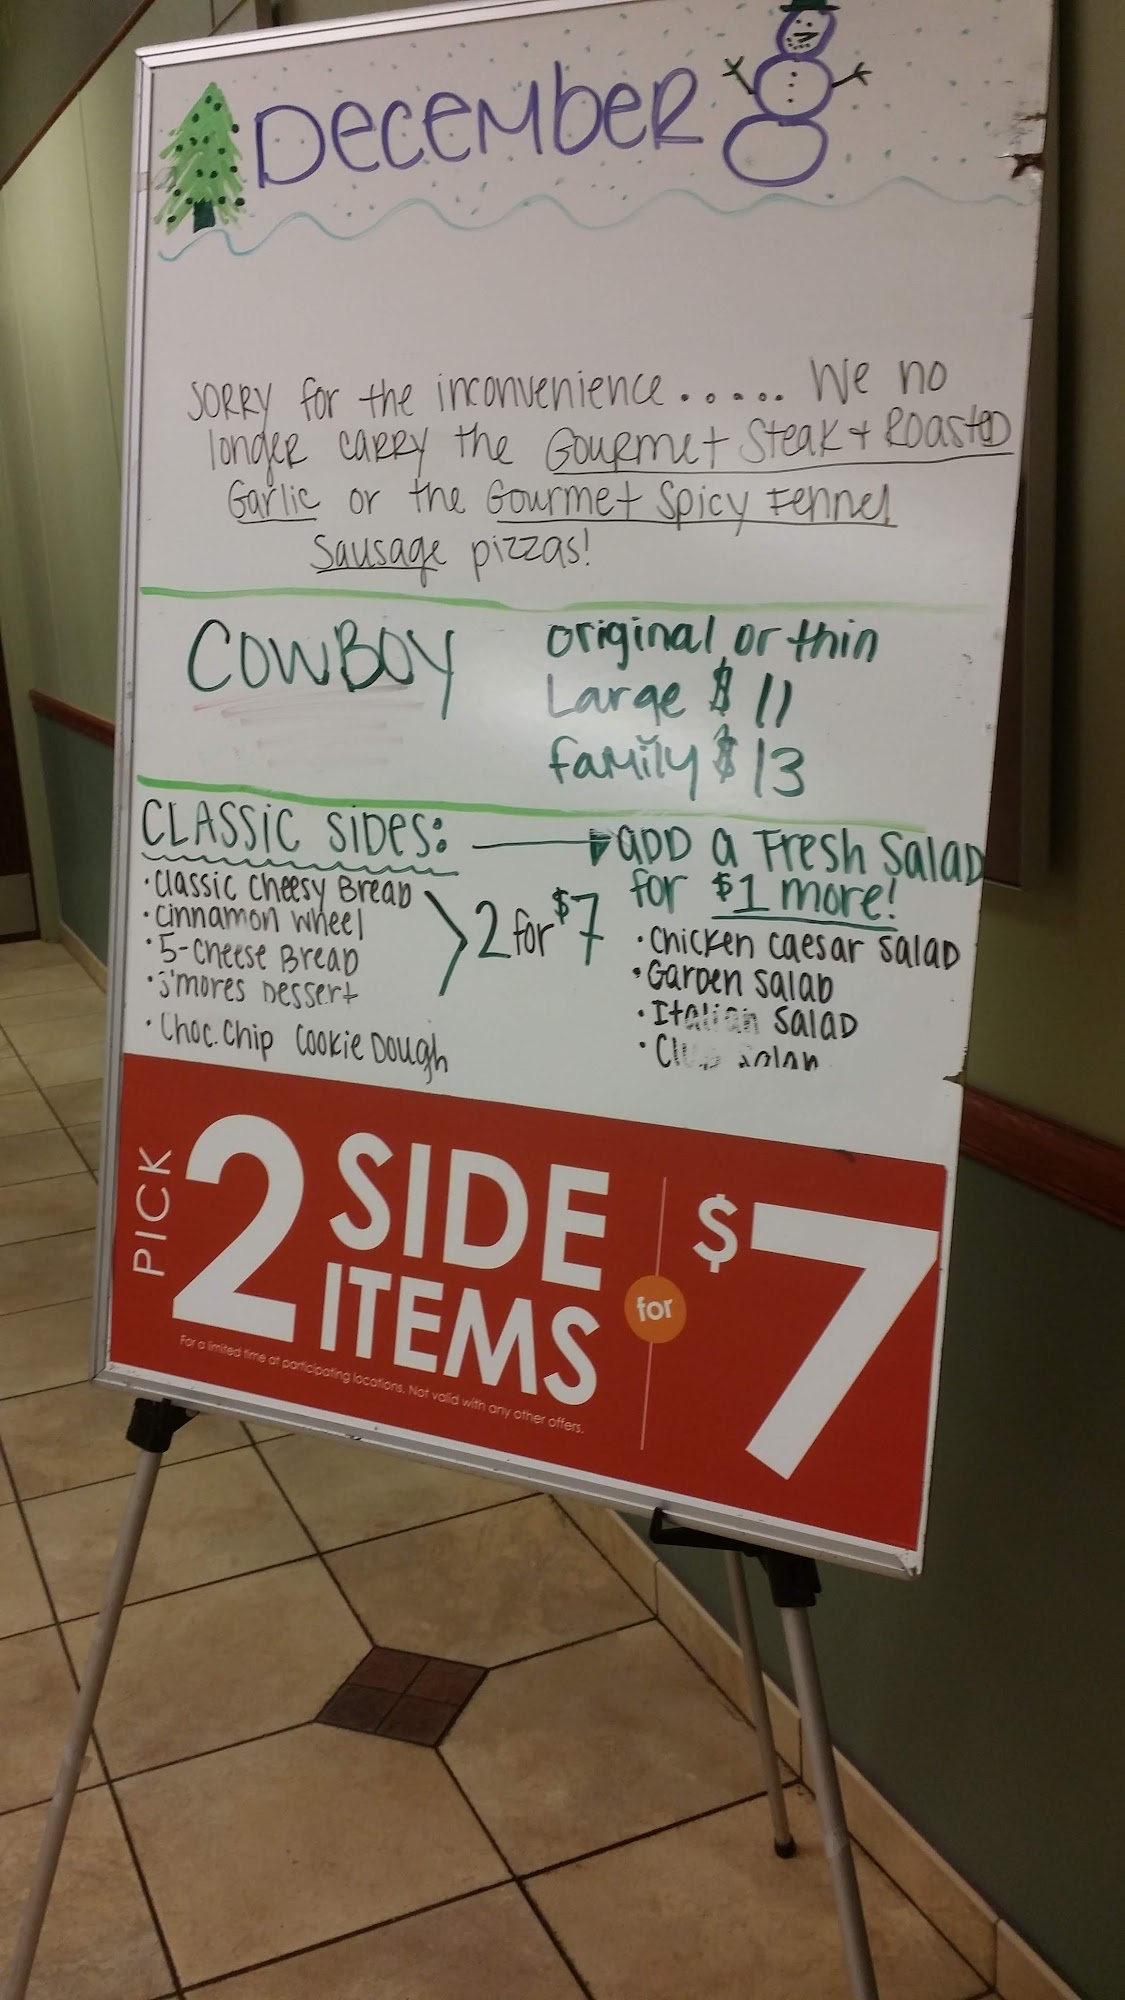 December
Sorry for the inconvenience..... We no
longer carry the Gourmet Steak + Roasted
Garlic or the Gourmet Spicy Fennel
Sausage pizzas!
COWBOY
original or thin
Large $11
family $13
CLASSIC SIDES:
• Classic Cheesy Bread
• Cinnamon Wheel
• 5-Cheese Bread
• S'mores Dessert
• Choc. Chip Cookie Dough
2 for $7
ADD a Fresh Salad
for $1 more!
• Chicken Caesar Salad
• Garden Salad
• Italian Salad
• Club Salad
PICK 2 SIDE ITEMS for $7
For a limited time at participating locations. Not valid with any other offers.